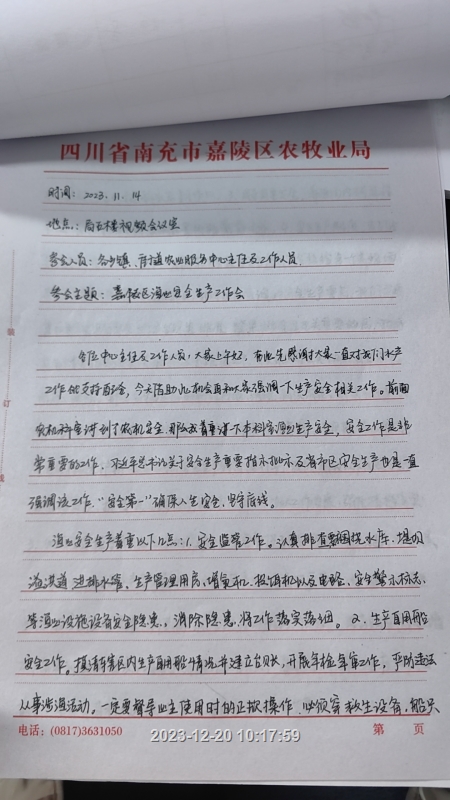 四川省南充市嘉陵区农牧业局
时间：2023.11.14
地点：局五楼视频会议室
参会人员：各乡镇、街道农业服务中心主任及工作人员
参会主题：嘉陵区渔业安全生产工作会
各位中心主任及工作人员，大家上午好，在此先感谢大家一直对我们水产
工作的支持配合，今天借助此机会再和大家强调一下生产安全相关工作。前面
农机科室讲到了农机安全，那么我着重讲下本科室渔业生产安全，安全工作是非
常重要的工作，习近平总书记关于安全生产重要指示批示及省市区安全生产也是一直
强调该工作，“安全第一”确保人生安全，坚守底线。
渔业安全生产着重以下几点：1、安全监管工作。认真排查要围提水库、堤坝
溢洪道 进排水管、生产管理用房、增氧机、投饵机以及电路、安全警示标志、
等渔业设施设备安全隐患，消除隐患，将工作落实落细。2、生产自用船
安全工作。摸清辖区内生产自用船情况并建立台账，开展年检年审工作，严防违法
从事涉渔活动。一定要督导业主使用时的正规操作，必须穿救生设备，船只
电话：(0817)3631050
第 页
装
订
线
2023-12-20 10:17:59